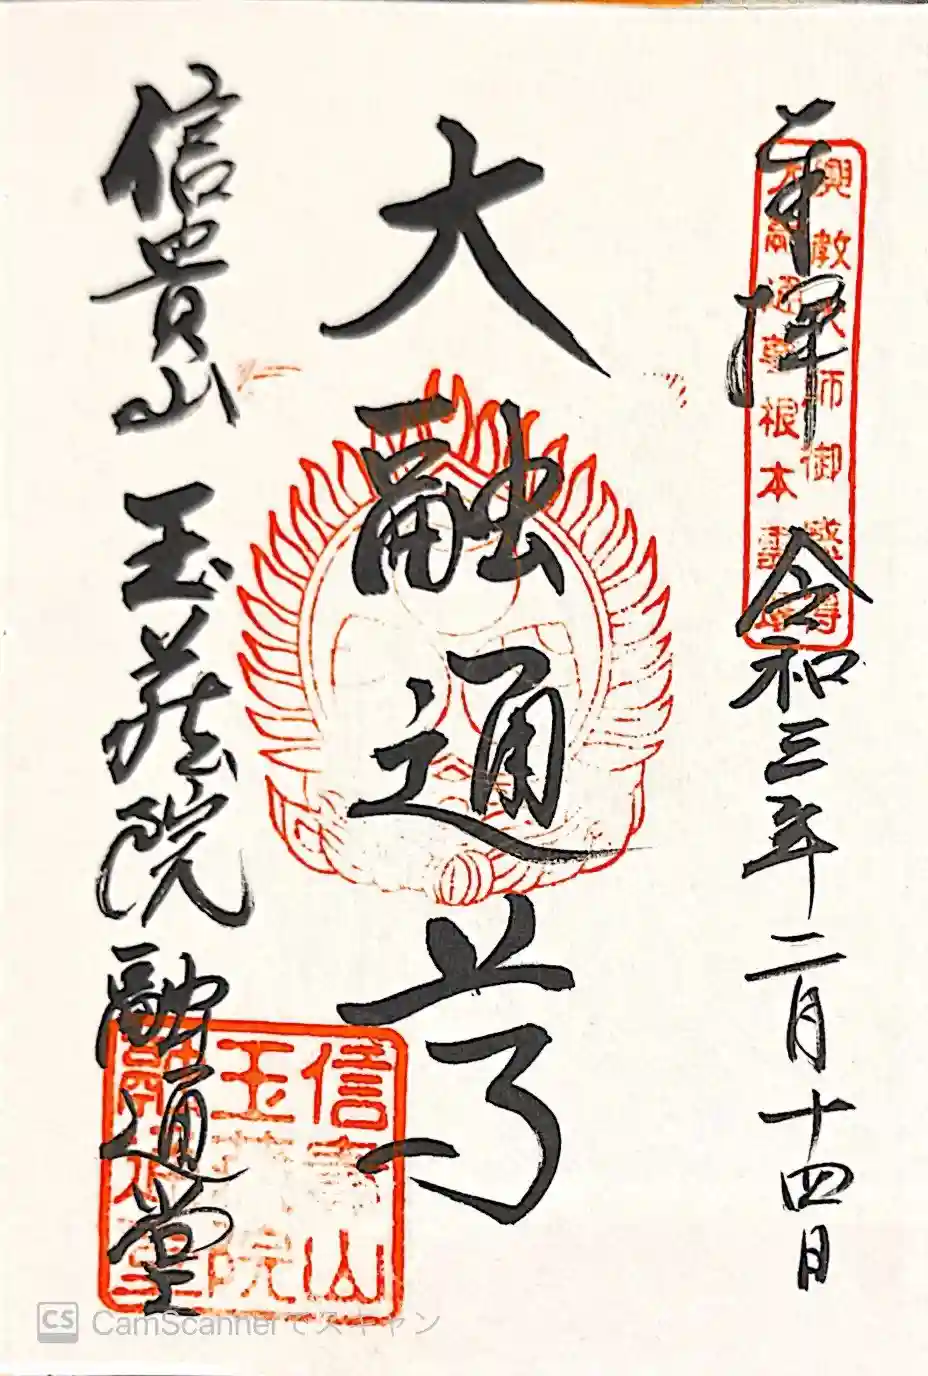 奉拝 令和三年二月十四日
興教大師御感得
大融通尊根本霊場
大融通尊
信貴山 玉蔵院 融通堂
信貴山
玉蔵院
融通堂
CS CamScannerでスキャン